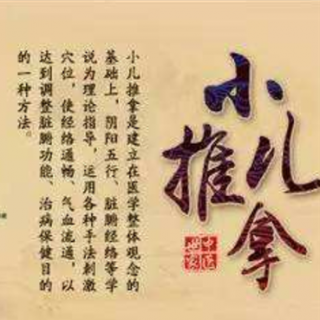 小儿推拿
中医世家
小儿推拿是建立在医学整体观念的
基础上，阴阳五行、脏腑经络等学
说为理论指导，运用各种手法刺激
穴位，使经络通畅、气血流通，以
达到调整脏腑功能、治病保健目的
的一种方法。